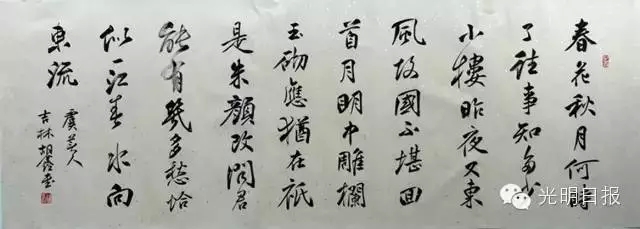 春花秋月何时
了往事知多少
小楼昨夜又东
风故国不堪回
首月明中雕栏
玉砌应犹在祇
是朱颜改问君
能有几多愁恰
似一江春水向
东流
虞美人
吉林胡
光明日报